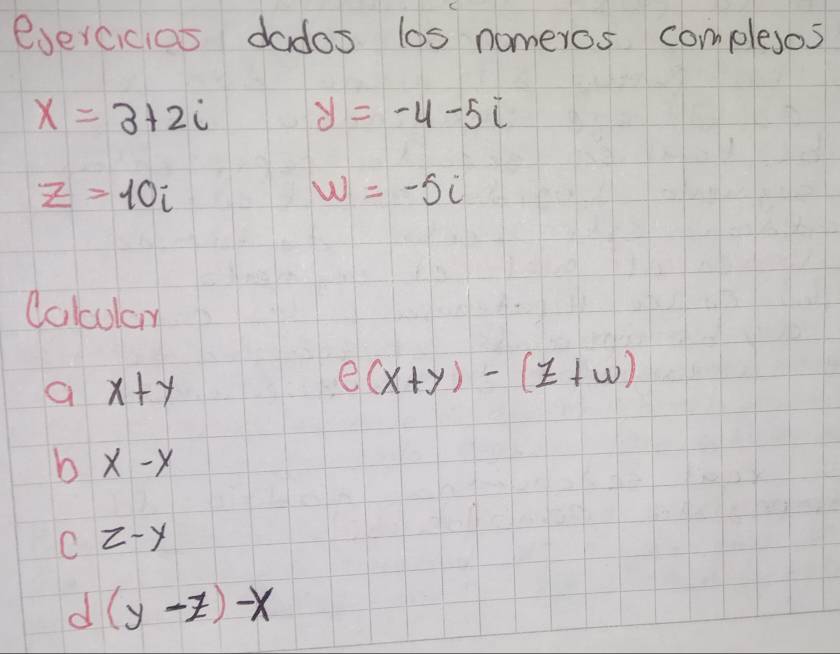 ejercicios dados los numeros complejos
x = 3+2i y = -4 -5i
z = 10i w = -5i
Calcular
a x+y e(x+y) - (z+w)
b x -y
c z-y
d (y -z) -x